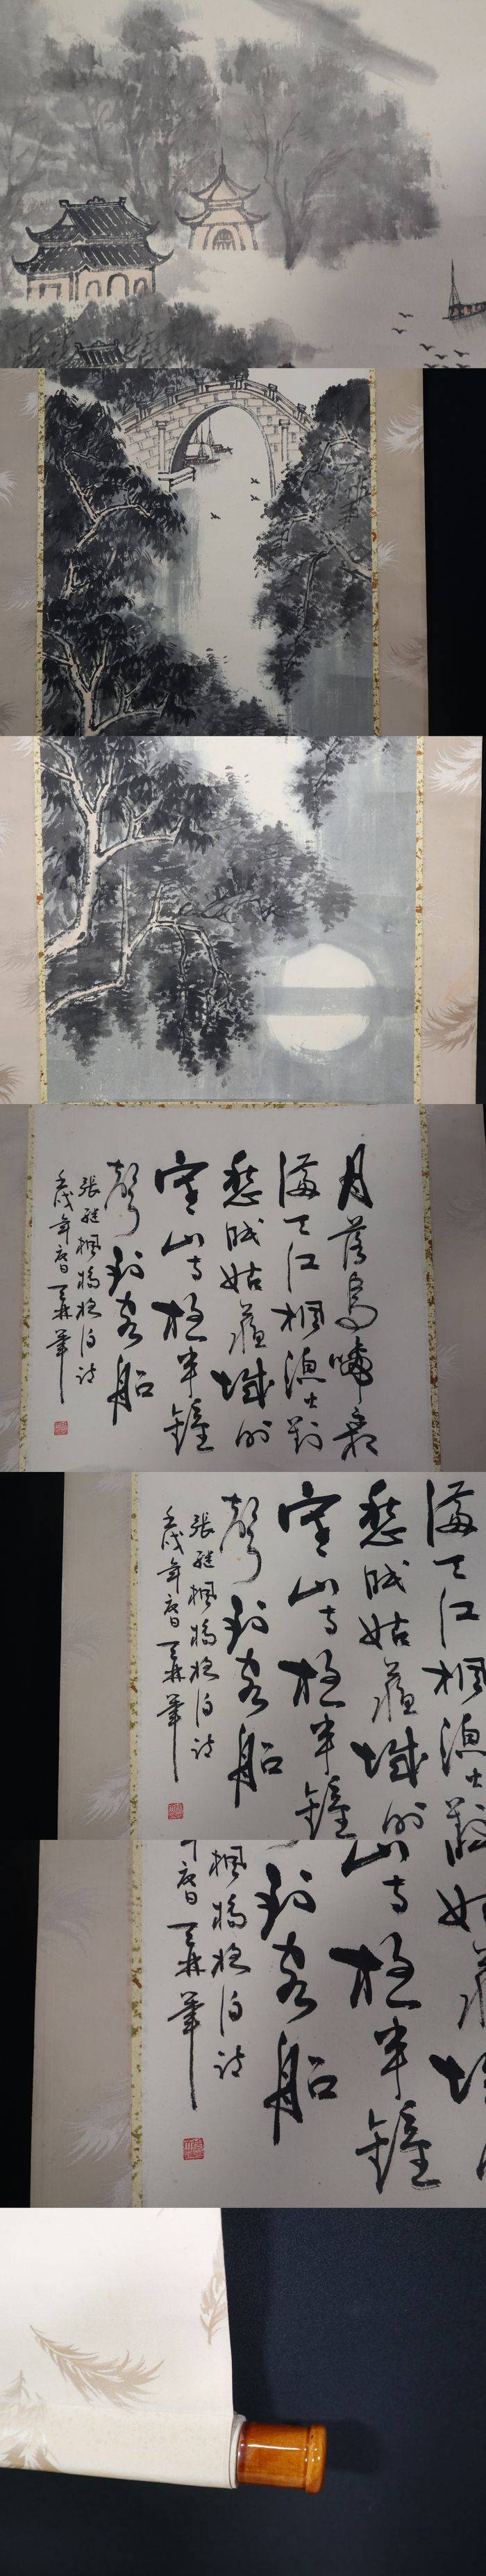 月落烏啼霜
滿天江楓漁火對
愁眠姑蘇城外
寒山寺夜半鐘
聲到客船
張繼楓橋夜泊詩
壬戌年春日筆
滿天江楓漁火對
愁眠姑蘇城外
寒山寺夜半鐘
聲到客船
張繼楓橋夜泊詩
壬戌年春日筆
姑
山寺夜半鐘
到客船
楓橋夜泊詩
年春日筆